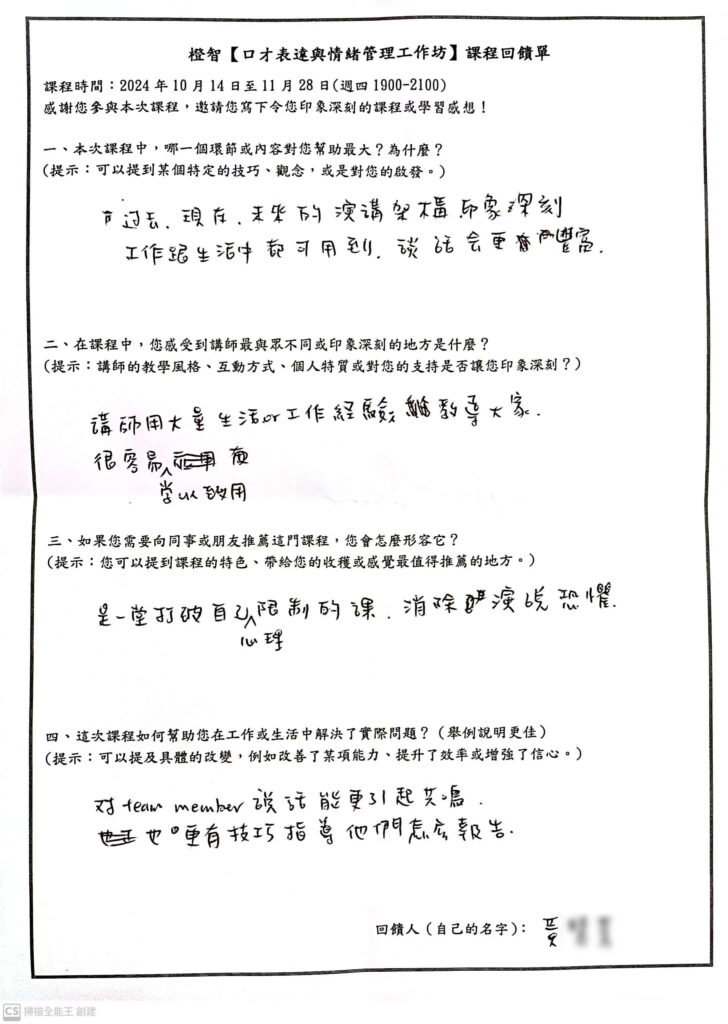 橙智【口才表達與情緒管理工作坊】課程回饋單
課程時間：2024 年 10 月 14 日至 11 月 28 日(週四 1900-2100)
感謝您參與本次課程，邀請您寫下令您印象深刻的課程或學習感想！
一、本次課程中，哪一個環節或內容對您幫助最大？為什麼？
(提示：可以提到某個特定的技巧、觀念，或是對您的啟發。)
過去、現在、未來的演講架構印象深刻
工作跟生活中都可用到，談話会更豐富.
二、在課程中，您感受到講師最與眾不同或印象深刻的地方是什麼？
(提示：講師的教學風格、互動方式、個人特質或對您的支持是否讓您印象深刻？)
講師用大量生活or工作経驗教導大家.
很容易
学以致用
三、如果您需要向同事或朋友推薦這門課程，您會怎麼形容它？
(提示：您可以提到課程的特色、帶給您的收穫或感覺最值得推薦的地方。)
是一堂打破自己限制的課，消除演說恐懼.
心理
四、這次課程如何幫助您在工作或生活中解決了實際問題？(舉例說明更佳)
(提示：可以提及具體的改變，例如改善了某項能力、提升了效率或增強了信心。)
对team member 談話能更引起共鳴.
也更有技巧指導他們怎麼報告.
回饋人(自己的名字)：
CS 掃描全能王 創建